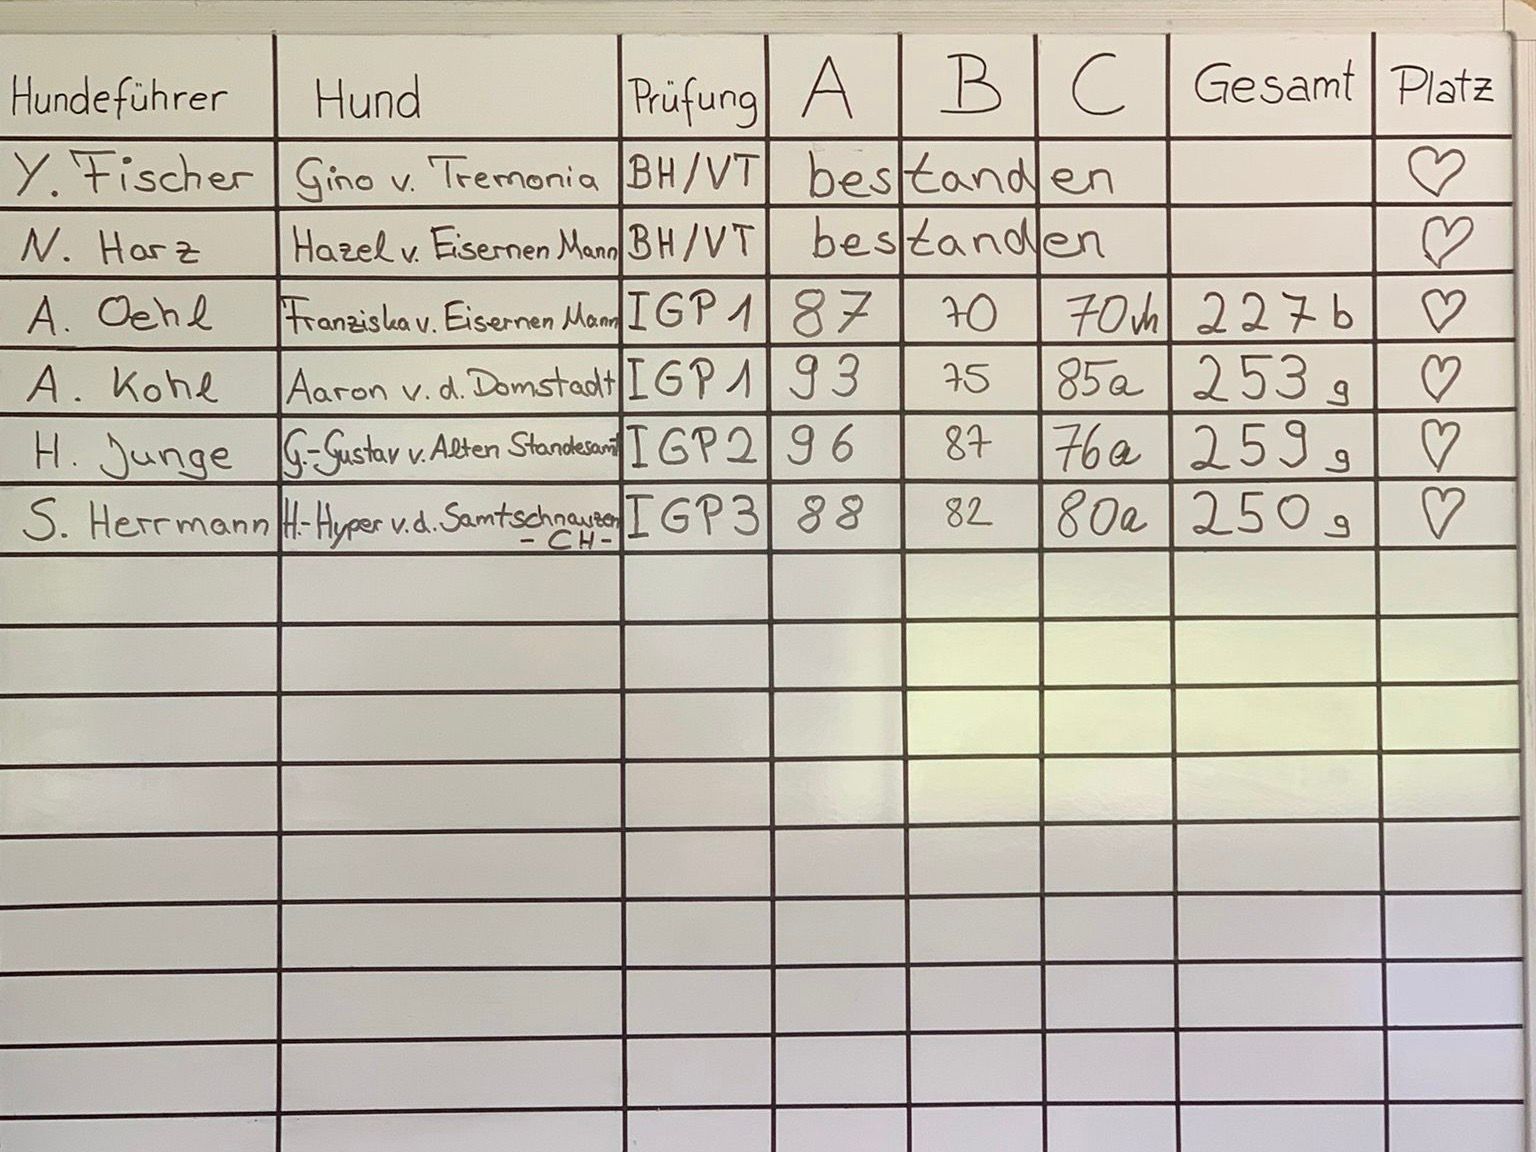 Hundeführer Hund Prüfung A B C Gesamt Platz
Y. Fischer Gino v. Tremonia BH/VT bestanden
N. Harz Hazel v. Eisernen Mann BH/VT bestanden
A. Oehl Franziska v. Eisernen Mann IGP1 87 70 70vh 227b
A. Kohl Aaron v. d. Domstadt IGP1 93 75 85a 253g
H. Junge G.-Gustav v. Alten Standesamt IGP2 96 87 76a 259g
S. Herrmann H.-Hyper v.d. Samtschnauzen IGP3 88 82 80a 250g
-CH-